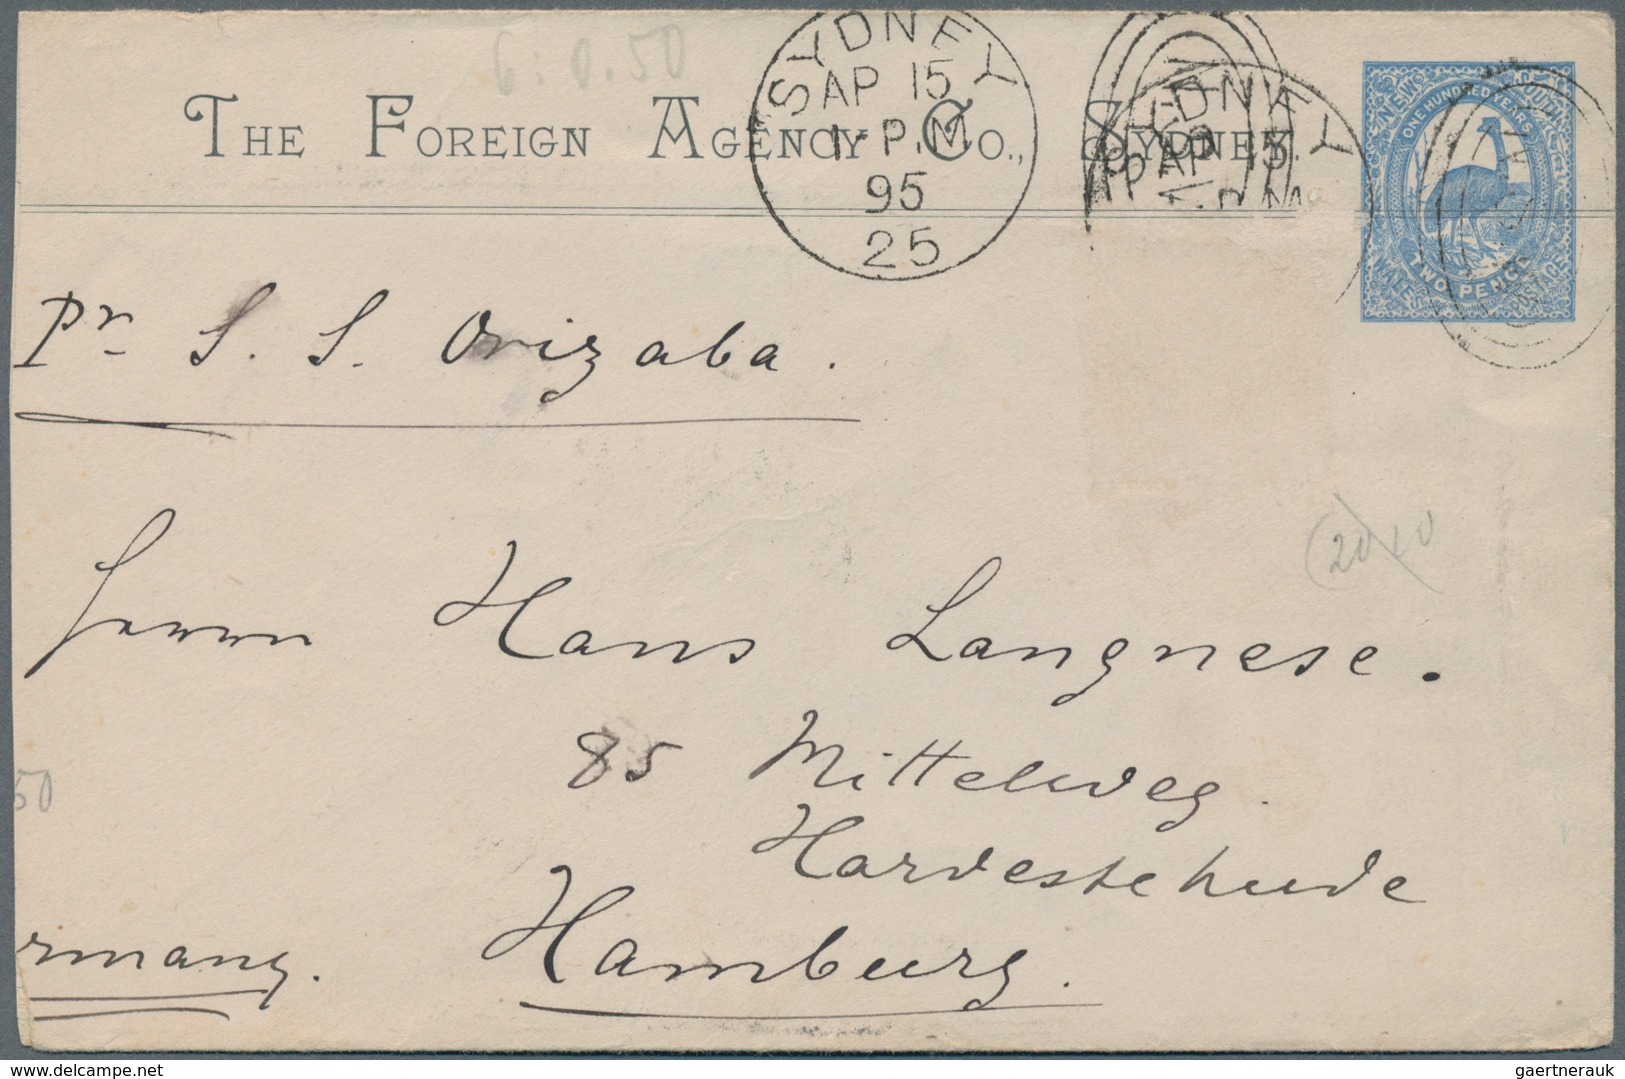 6:0.50
SYDNEY
AP 15
1-P.M
95
25
SYDNEY
AP 15
THE FOREIGN AGENCY CO., SYDNEY.
NEW SOUTH WALES
ONE HUNDRED YEARS
TWO PENCE
POSTAGE
Pr S. S. Orizaba.
Herrn Hans Langnese.
85 Mittelweg.
Harvestehude
rmany. Hamburg.
20
50
gaertnerauk